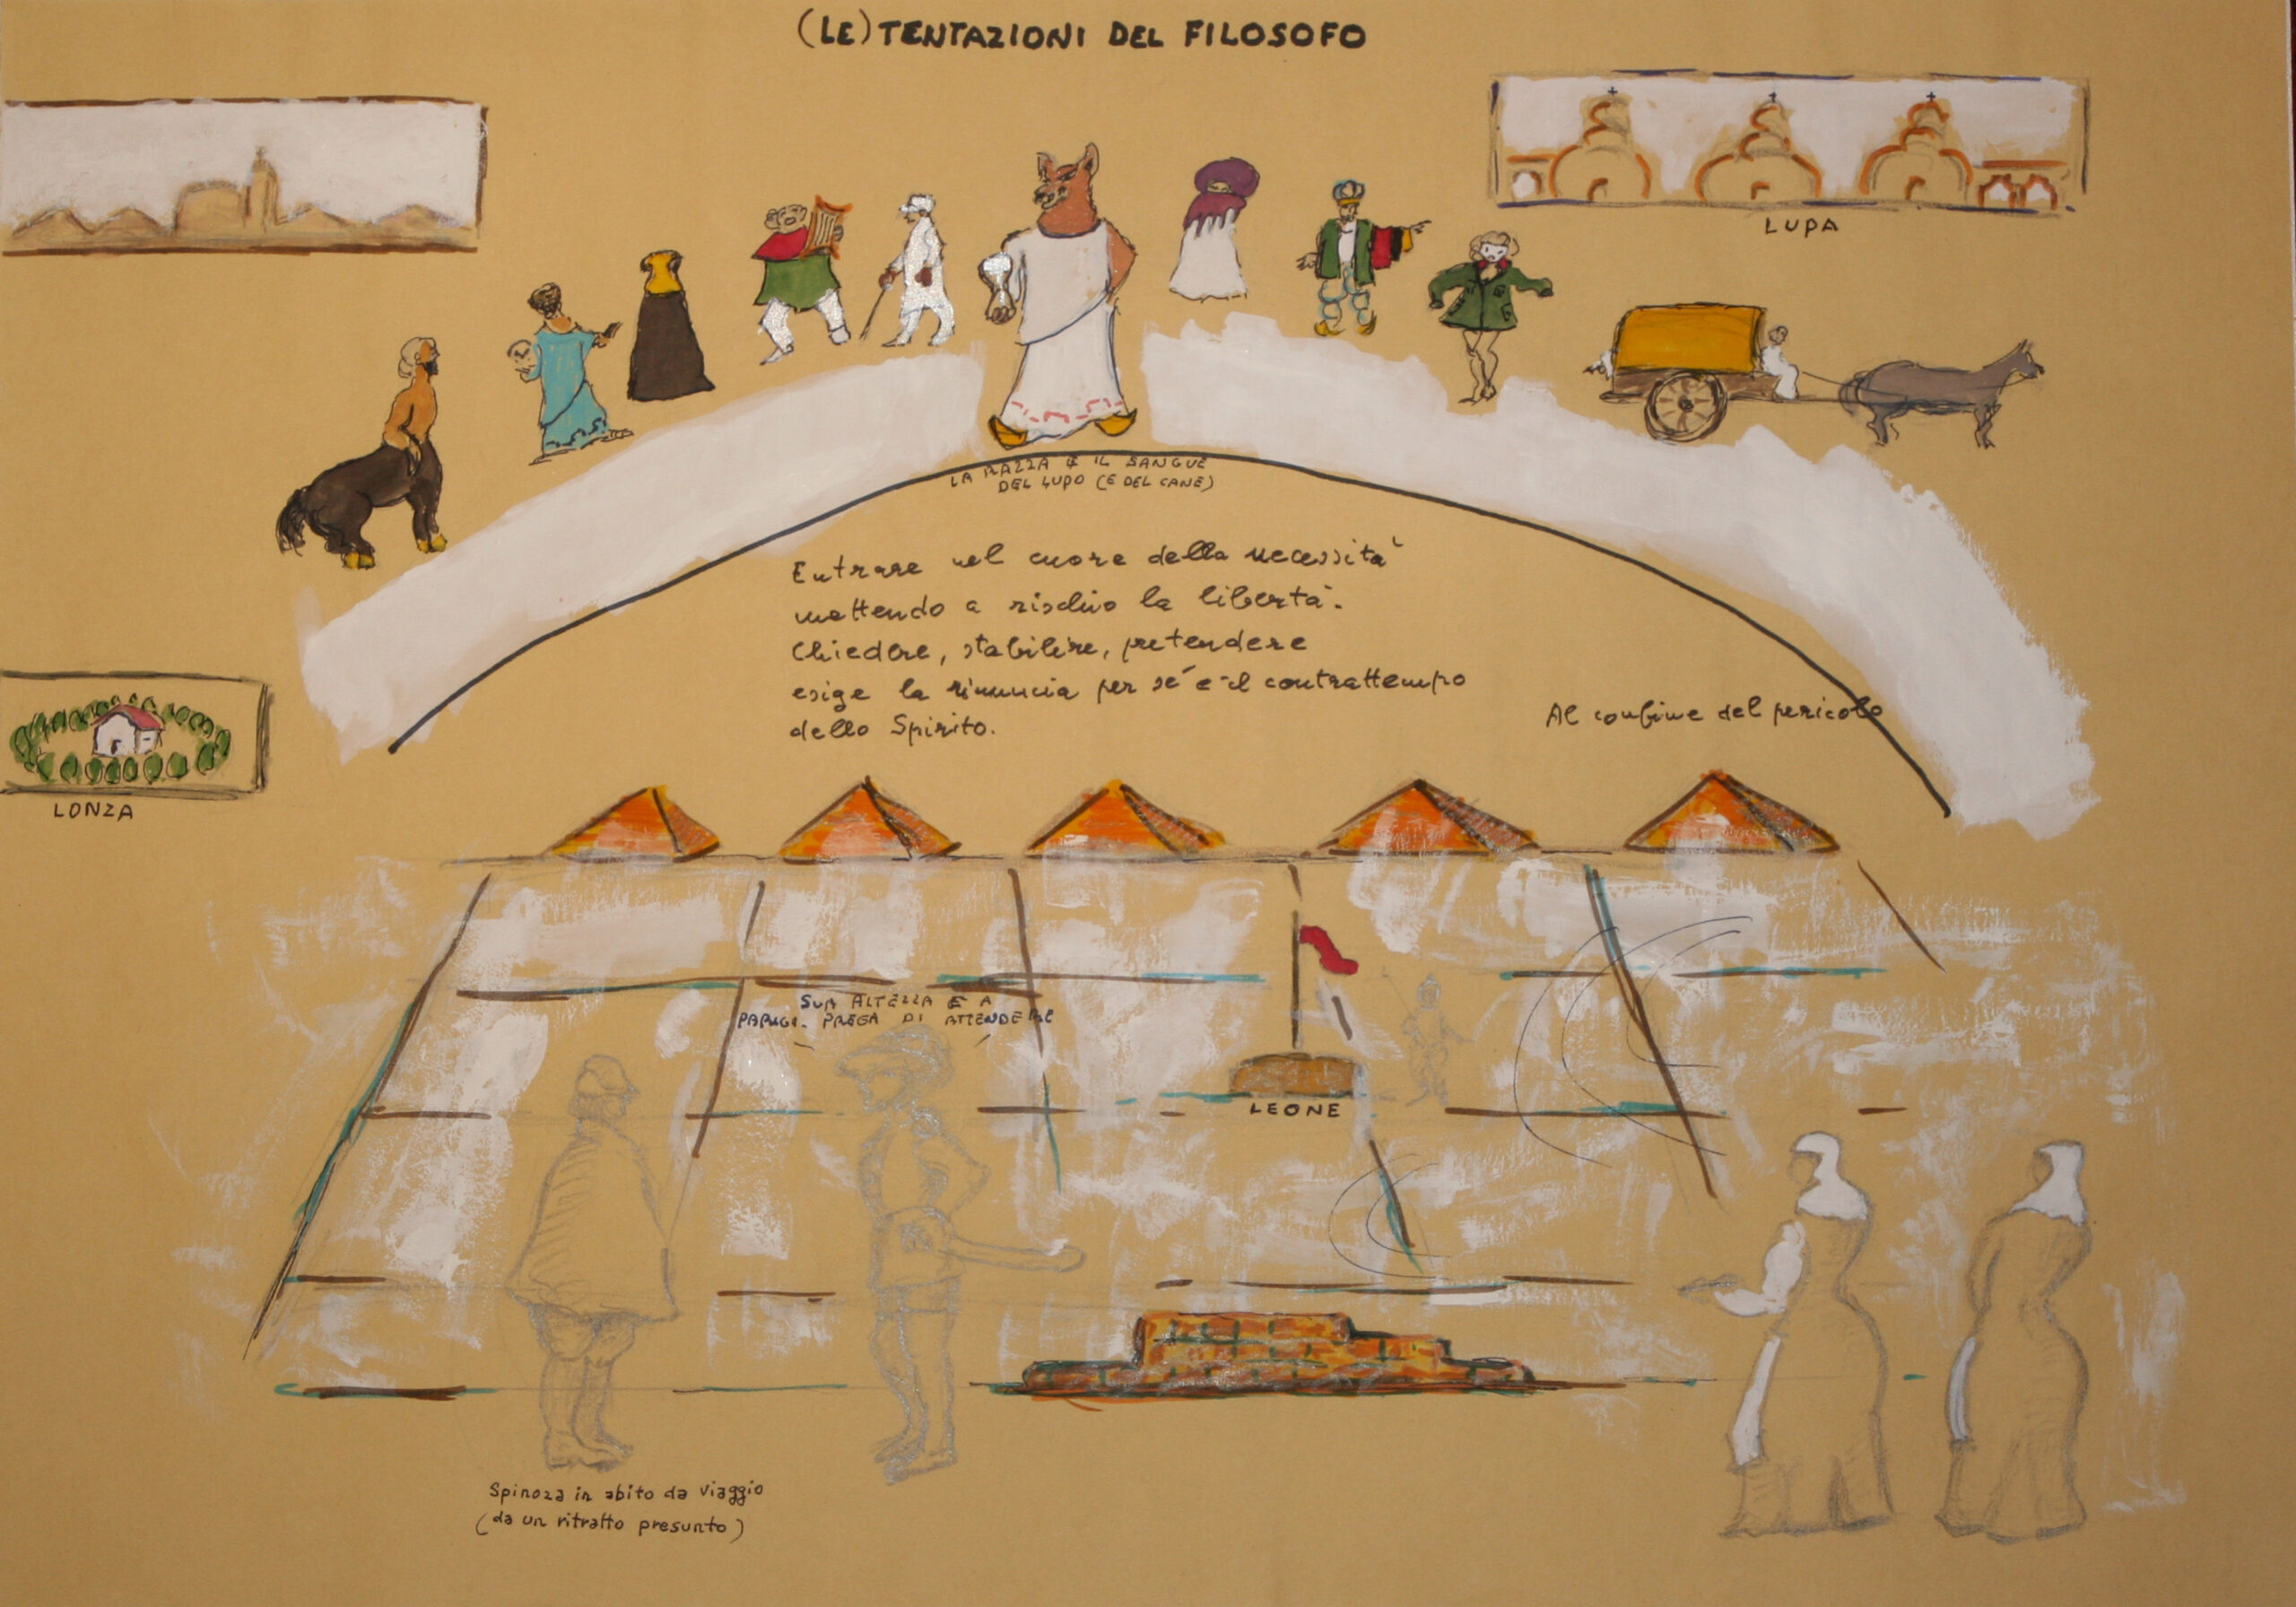 (LE) TENTAZIONI DEL FILOSOFO
LUPA
LA RAZZA E IL SANGUE
DEL LUPO (E DEL CANE)
Entrare nel cuore della necessità
mettendo a rischio la libertà.
Chiedere, stabilire, pretendere
esige la rinuncia per sé e il contrattempo
dello Spirito.
Al confine del pericolo
LONZA
SUA ALTEZZA E A
PARIGI. PREGA DI ATTENDERE
LEONE
Spinoza in abito da viaggio
(da un ritratto presunto)